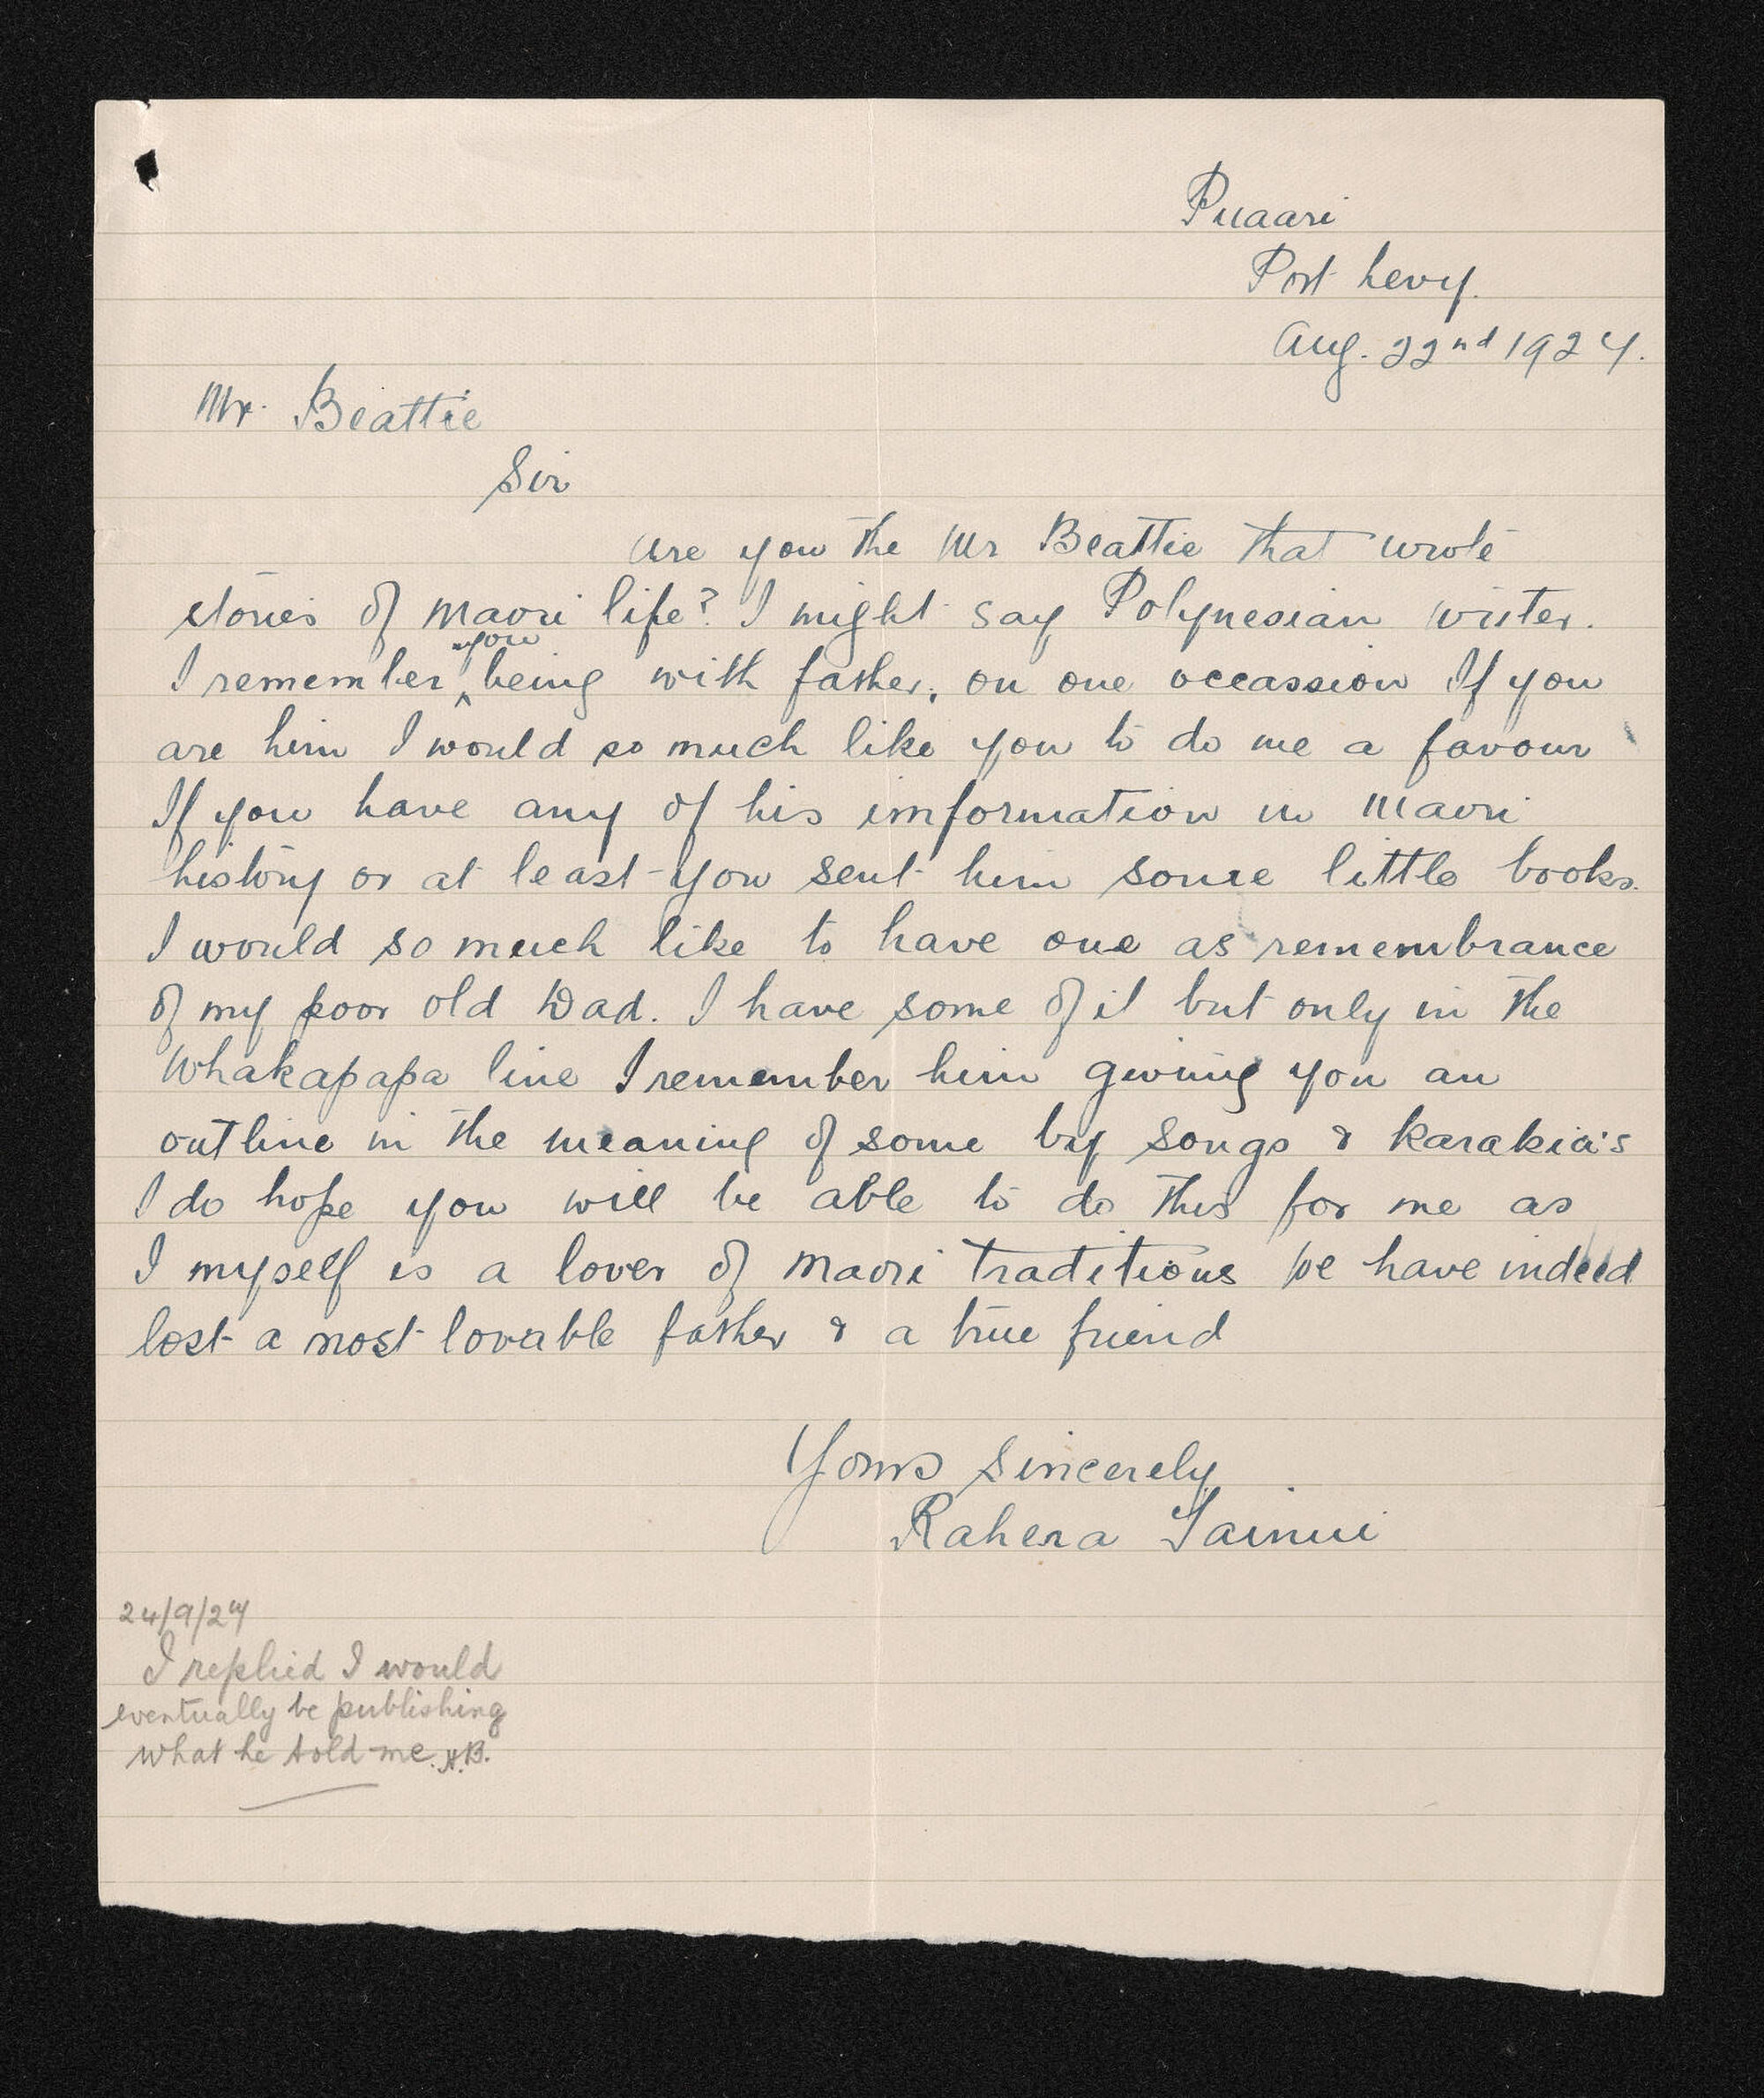 Puaari
Port Levy.
Aug. 22nd 1924.
Mr. Beattie
Sir
Are you the Mr Beattie that wrote
stories of Maori life? I might say Polynesian writer.
I remember you being with father, on one occassion If you
are him I would so much like you to do me a favour
If you have any of his imformation in Maori
history or at least you sent him some little books.
I would so much like to have one as remembrance
of my poor old Dad. I have some of it but only in the
Whakapapa line I remember him giving you an
outline in the meaning of some by songs & Karakia's
I do hope you will be able to do this for me as
I myself is a lover of Maori traditions We have indeed
lost a most lovable father & a true friend
Yours Sincerely
Rahera Tainui
24/9/24
I replied I would
eventually be publishing
what he told me. H.B.